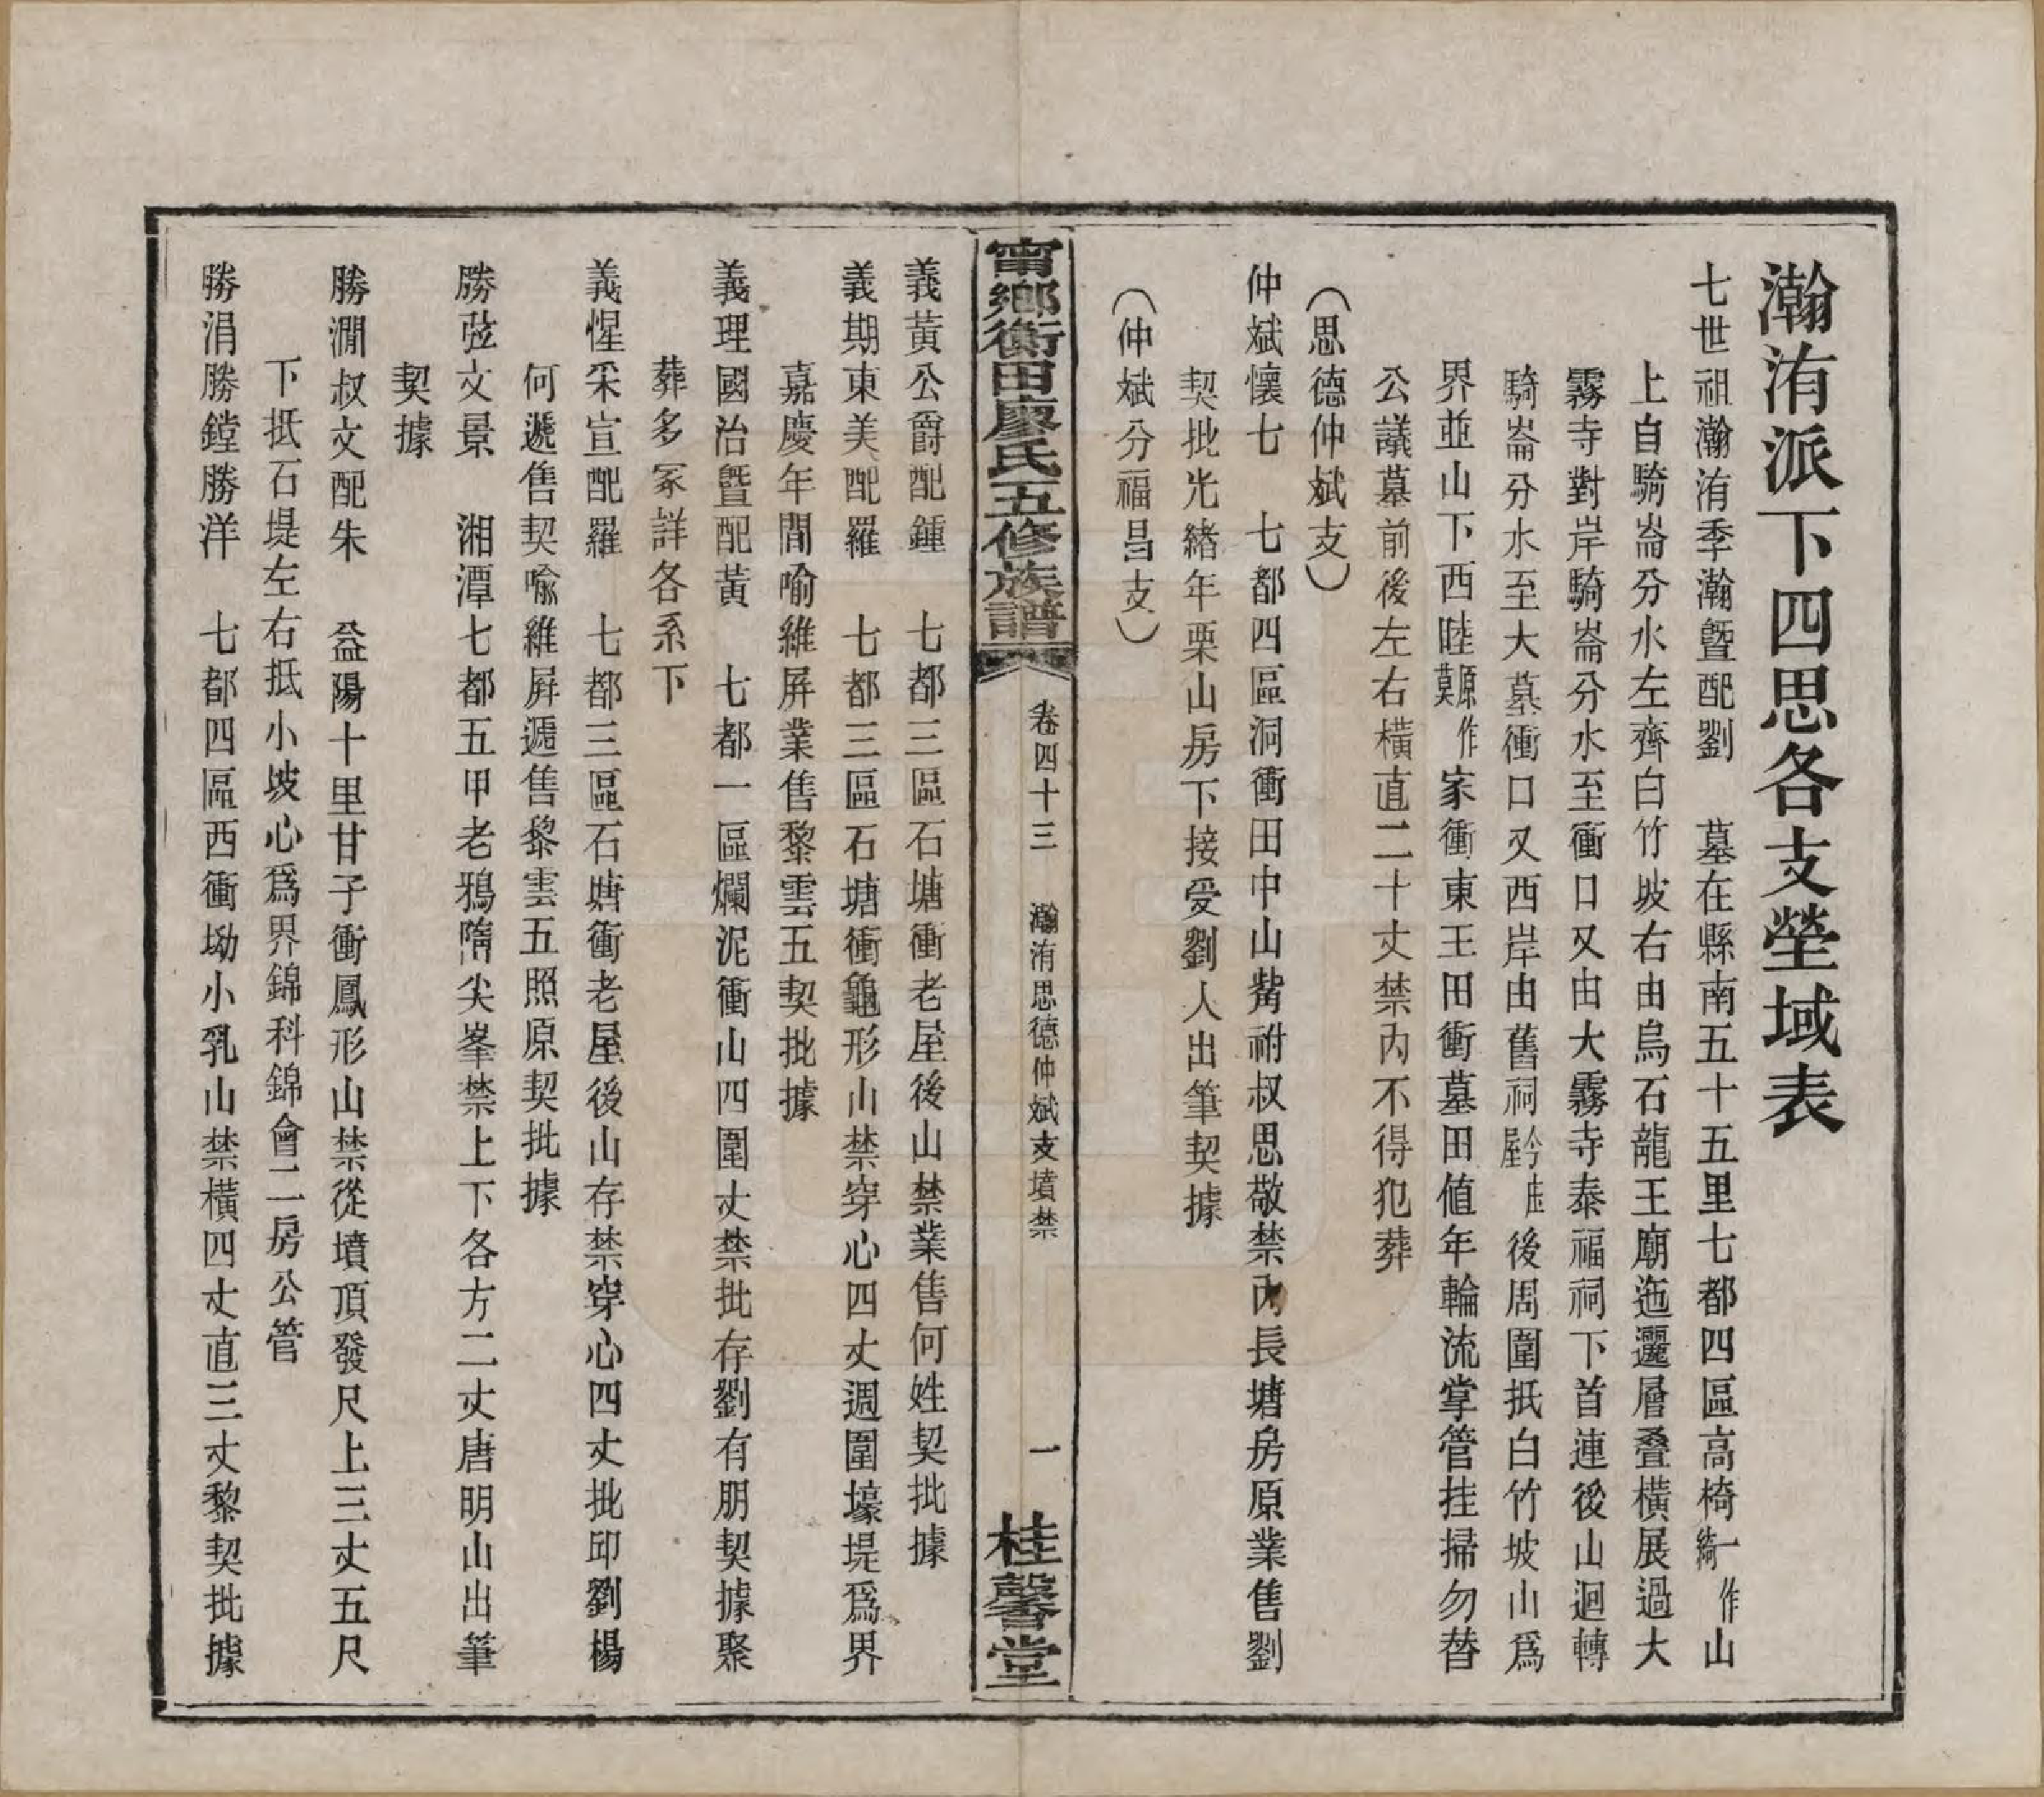 瀚洧派下四思各支塋域表
七世祖瀚洧季瀚暨配劉　墓在縣南五十五里七都四區高椅一作綺山
上自騎崙分水左齊白竹坡右由烏石龍王廟迤邐層疊橫展過大
霧寺對岸騎崙分水至衝口又由大霧寺泰福祠下首連後山迴轉
騎崙分水至大墓衝口又西岸由舊祠今庄屋後周圍抵白竹坡山爲
界並山下西眭原作莫家衝東王田衝墓田値年輪流掌管挂掃勿替
公議墓前後左右橫直二十丈禁內不得犯葬
（思德仲斌支）
仲斌懷七　七都四區洞衝田中山觜祔叔思敬禁內長塘房原業售劉
契批光緒年栗山房下接受劉人出筆契據
（仲斌分福昌支）
甯鄉衡田廖氏五修族譜　卷四十三　瀚洧思德仲斌支墳禁　一　桂馨堂
義黃公爵配鍾　七都三區石塘衝老屋後山禁業售何姓契批據
義期東美配羅　七都三區石塘衝龜形山禁穿心四丈週圍壕堤爲界
嘉慶年間喻維屏業售黎雲五契批據
義理國治暨配黃　七都一區爛泥衝山四圍丈禁批存劉有朋契據聚
葬多冢詳各系下
義惺采宣配羅　七都三區石塘衝老屋後山存禁穿心四丈批邱劉楊
何遞售契喻維屏遞售黎雲五照原契批據
勝弦文景　湘潭七都五甲老鴉隋尖峯禁上下各方二丈唐明山出筆
契據
勝澗叔文配朱　益陽十里甘子衝鳳形山禁從墳頂發尺上三丈五尺
下抵石堤左右抵小坡心爲界錦科錦會二房公管
勝涓勝鏜勝洋　七都四區西衝坳小乳山禁橫四丈直三丈黎契批據